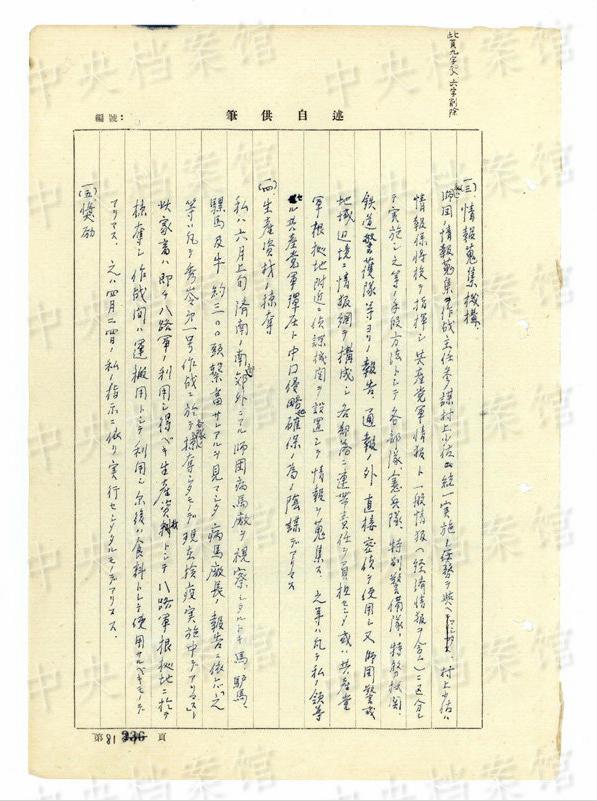 此頁九字加入六字刪除
編號：
筆供自述
(三)情報蒐集機構、
師団ノ情報蒐集ハ作戦主任参謀村上少佐ニ統一実施ノ任務ヲ与ヘ 村上少佐ハ
情報係将校ヲ指揮シ共産党軍情報ト一般情報(経済情報ヲ含ム)ニ区分シ
テ実施シ之等ノ手段方法トシテ各部隊憲兵隊、特別警備隊、特務機関、
鉄道警護隊等ヨリノ報告、通報ノ外直接密偵ヲ使用シ又師団警戒
地域辺境ニ情報網ヲ構成シ各部落ニ連帯責任ヲ負担セシメ或ハ共産党
軍根拠地附近ニ偵諜機関ヲ設置シテ情報ヲ蒐集ス 之等ハ凡テ私ノ領導
セル共産党軍弾圧ト中国侵略地確保ノ為ノ陰謀デアリマス
(四)生産資材ノ掠奪
私ハ六月上旬済南ノ南郊外ニアル師団病馬廠ヲ視察シタルトキ馬、驢馬、
騾馬及牛約三〇〇頭繋畜サレアルヲ見マシタ 病馬廠長ノ報告ニ依レバ之
等ハ凡テ秀嶺第一号作戦ニ於テ各隊ガ掠奪シタモノデ現在検疫実施中デアリマス
此家畜ハ即チ八路軍ノ利用シ得ベキ生産資材トシテ八路軍根拠地ニ於テ
掠奪シ作戦間ハ運搬用トシテ利用シ尔後ハ食料トシテ使用サルベキモノデ
アリマス、之ハ四月二四日ノ私ノ指示ニ依リ実行セシメタルモノデアリマス、
(五)獎励
第18頁
336
中央档案馆